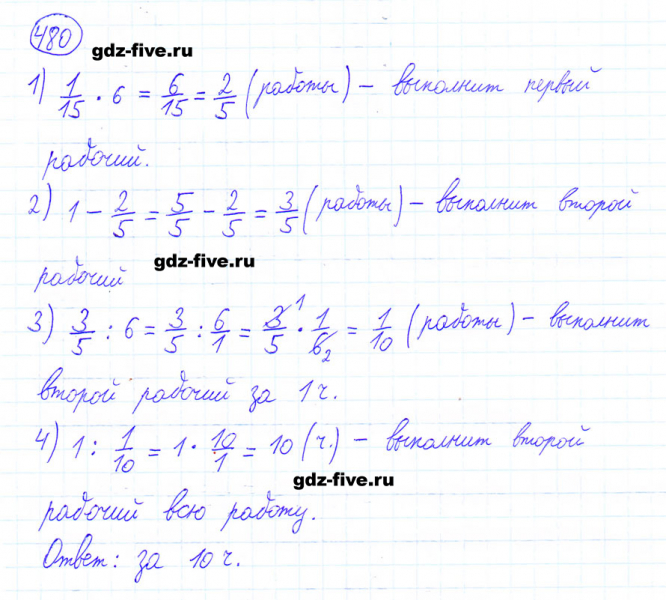 480
gdz-five.ru
1) 1/15 · 6 = 6/15 = 2/5 (работы) – выполнит первый
рабочий.
2) 1 – 2/5 = 5/5 – 2/5 = 3/5 (работы) – выполнит второй
рабочий
gdz-five.ru
3) 3/5 : 6 = 3/5 : 6/1 = 3/5 1 · 1/6 2 = 1/10 (работы) – выполнит
второй рабочий за 1 ч.
4) 1 : 1/10 = 1 · 10/1 = 10 (ч.) – выполнит второй
gdz-five.ru
рабочий всю работу.
Ответ: за 10 ч.